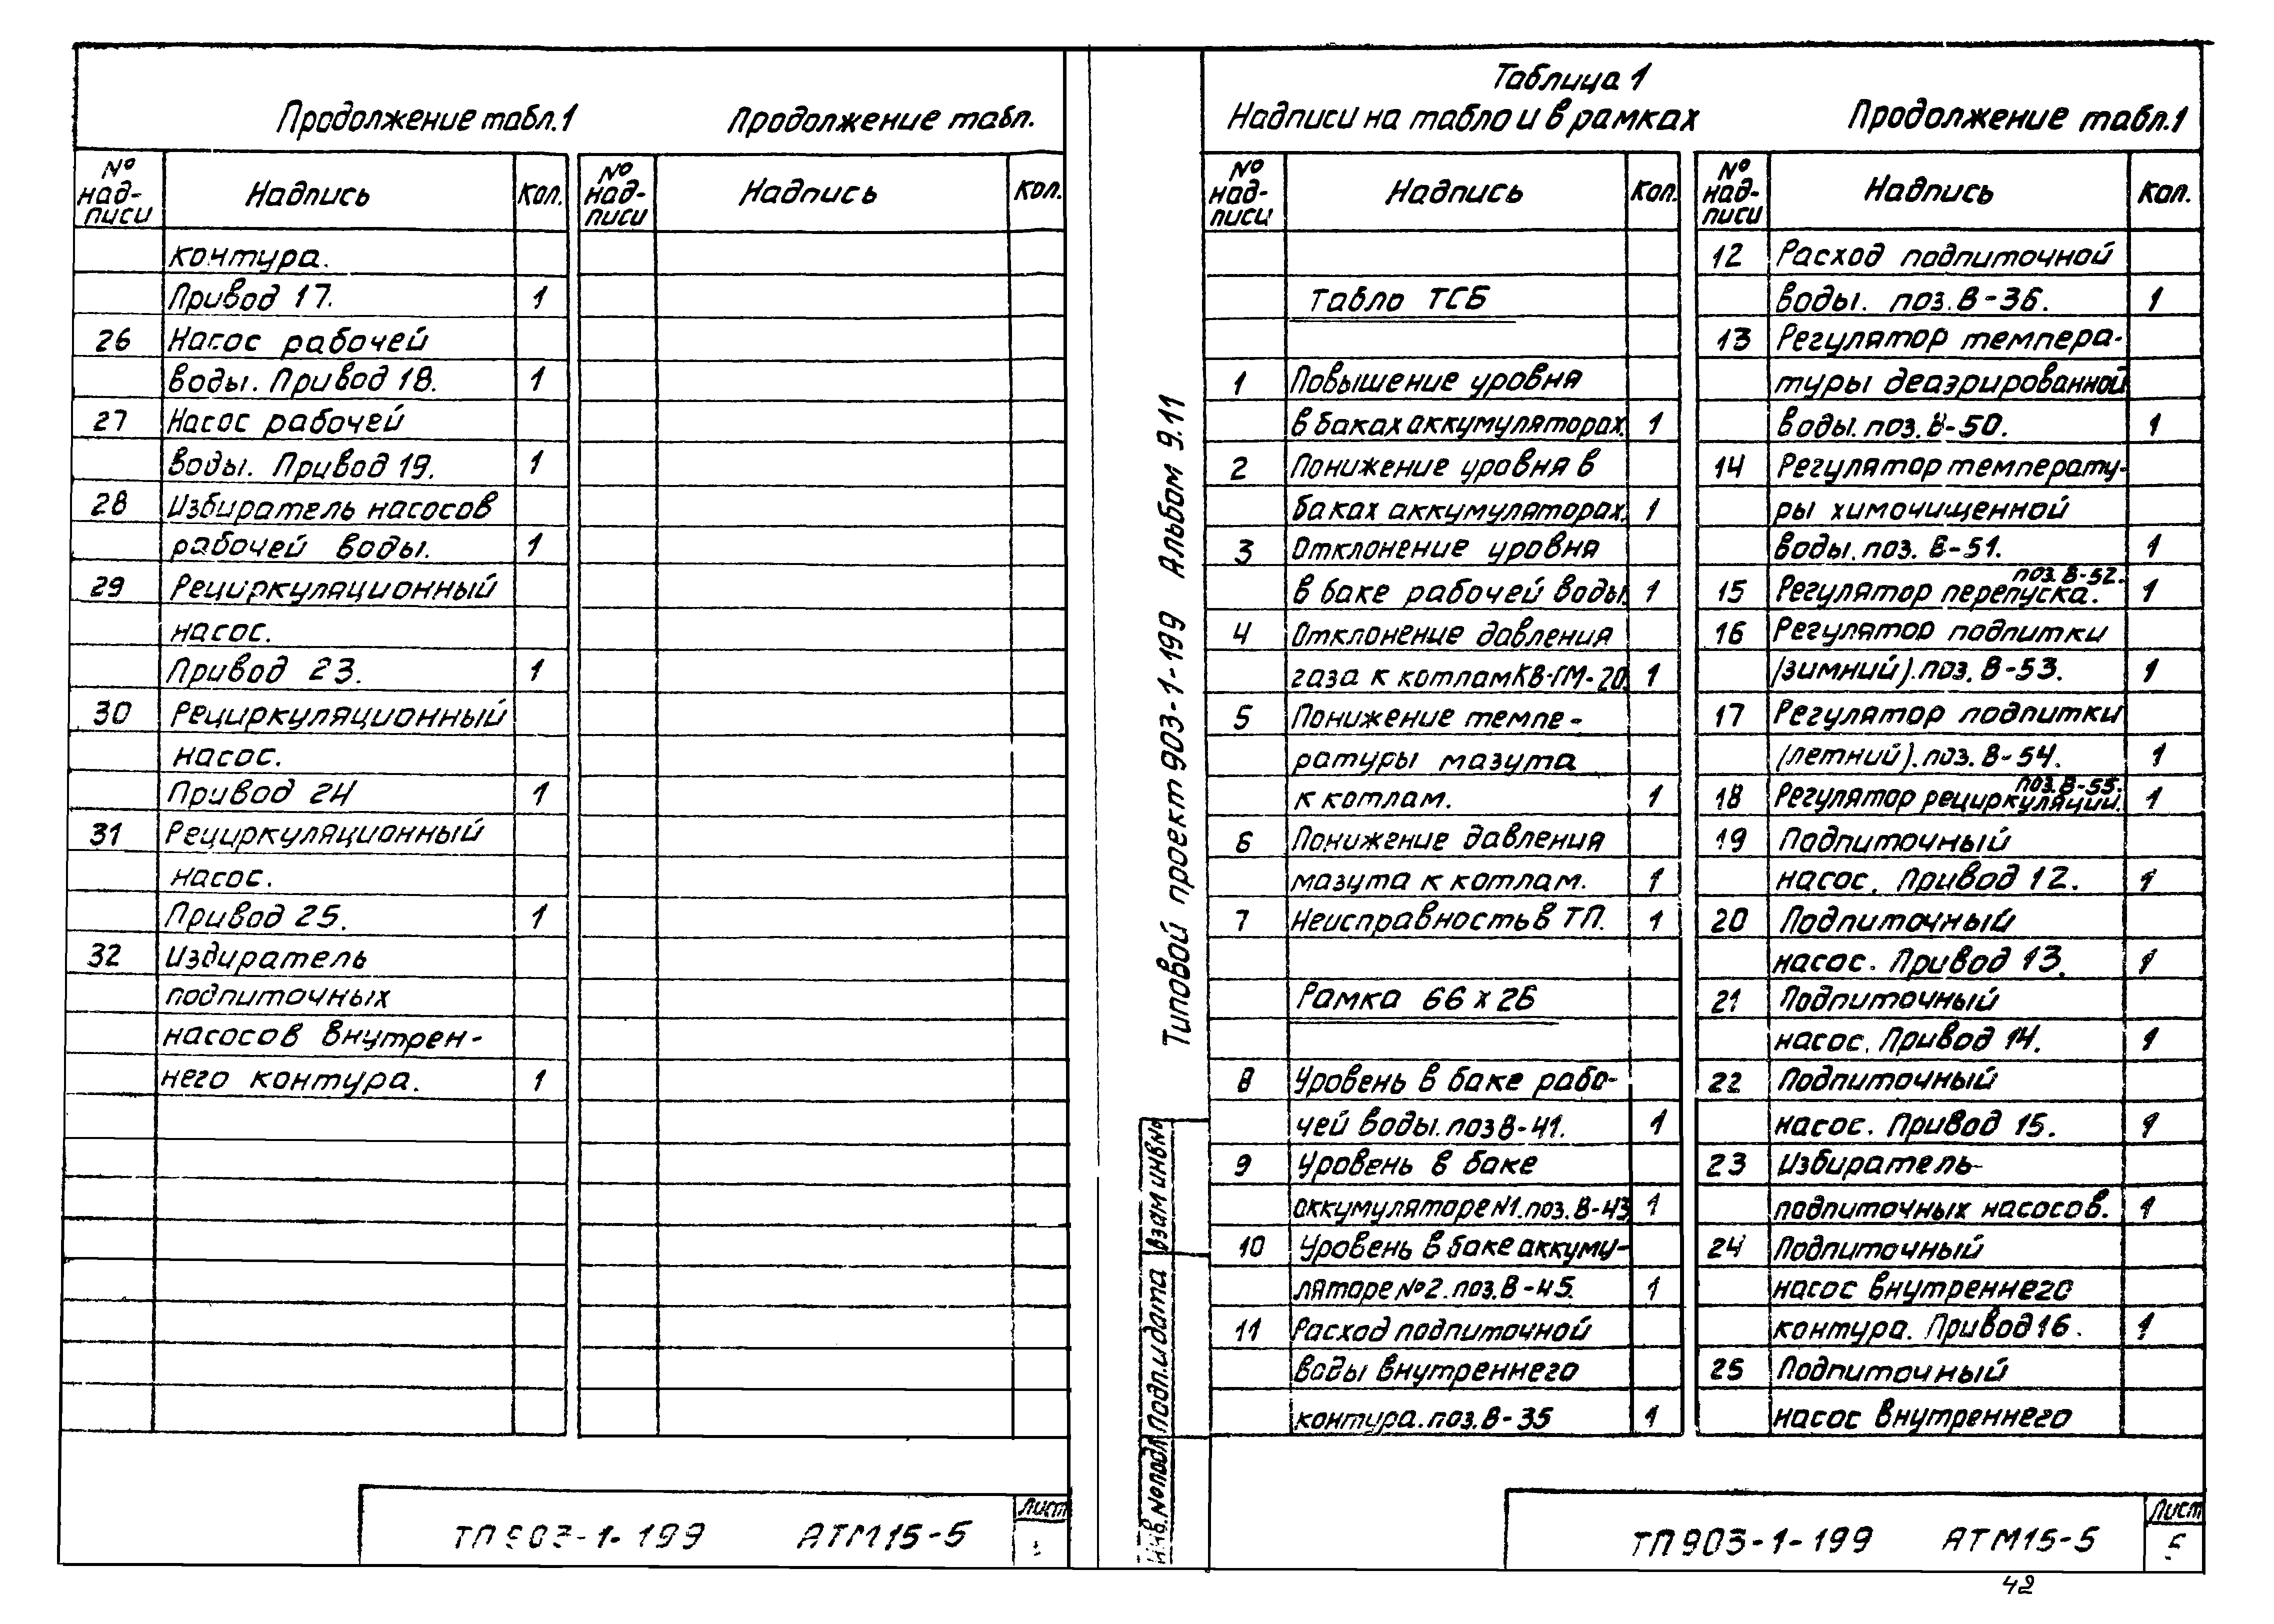 Продолжение табл.1
№ над- писи Надпись Кол.
контура.
Привод 17. 1
26 Насос рабочей
воды. Привод 18. 1
27 Насос рабочей
воды. Привод 19. 1
28 Избиратель насосов
рабочей воды. 1
29 Рециркуляционный
насос.
Привод 23. 1
30 Рециркуляционный
насос.
Привод 24 1
31 Рециркуляционный
насос.
Привод 25. 1
32 Избиратель
подпиточных
насосов внутрен-
него контура. 1
Продолжение табл.
№ над- писи Надпись Кол.
ТП 903-1-199 АТМ15-5
Лист
Типовой проект 903-1-199 Альбом 9.11
Взам инв №
Подп. и дата
Инв. № подл
Таблица 1
Надписи на табло и в рамках
№ над- писи Надпись Кол.
Табло ТСБ
1 Повышение уровня
в баках аккумуляторах. 1
2 Понижение уровня в
баках аккумуляторах. 1
3 Отклонение уровня
в баке рабочей воды. 1
4 Отклонение давления
газа к котлам КВ-ГМ-20. 1
5 Понижение темпе-
ратуры мазута
к котлам. 1
6 Понижение давления
мазута к котлам. 1
7 Неисправность в ТП. 1
Рамка 66 х 26
8 Уровень в баке рабо-
чей воды. поз В-41. 1
9 Уровень в баке
аккумуляторе №1. поз. В-43 1
10 Уровень в баке аккуму-
ляторе №2. поз. В-45. 1
11 Расход подпиточной
воды внутреннего
контура. поз. В-35 1
Продолжение табл.1
№ над- писи Надпись Кол.
12 Расход подпиточной
воды. поз. В-36. 1
13 Регулятор темпера-
туры деаэрированной
воды. поз. В-50. 1
14 Регулятор температу-
ры химочищенной
воды. поз. В-51. 1
15 Регулятор перепуска. поз. В-52. 1
16 Регулятор подпитки
(зимний). поз. В-53. 1
17 Регулятор подпитки
(летний). поз. В-54. 1
18 Регулятор рециркуляции. поз. В-55. 1
19 Подпиточный
насос. Привод 12. 1
20 Подпиточный
насос. Привод 13. 1
21 Подпиточный
насос. Привод 14. 1
22 Подпиточный
насос. Привод 15. 1
23 Избиратель
подпиточных насосов. 1
24 Подпиточный
насос внутреннего
контура. Привод 16. 1
25 Подпиточный
насос внутреннего
ТП 903-1-199 АТМ15-5
Лист
5
42